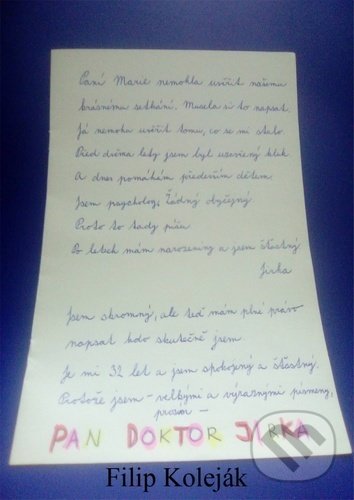 Paní Marie nemohla uvěřit našemu
krásnému setkání. Musela si to napsat.
Já nemohu uvěřit tomu, co se mi stalo.
Před dvěma lety jsem byl uzavřený kluk.
A dnes pomáhám především dětem.
Jsem psycholog, žádný obyčejný.
Proto to tady píšu
Po letech mám narozeniny a jsem šťastný
Jirka
Jsem skromný, ale teď mám plné právo
napsat kdo skutečně jsem
Je mi 32 let a jsem spokojený a šťastný.
Protože jsem - velkými a výraznými písmeny,
prosím -
PAN DOKTOR JIRKA
Filip Koleják